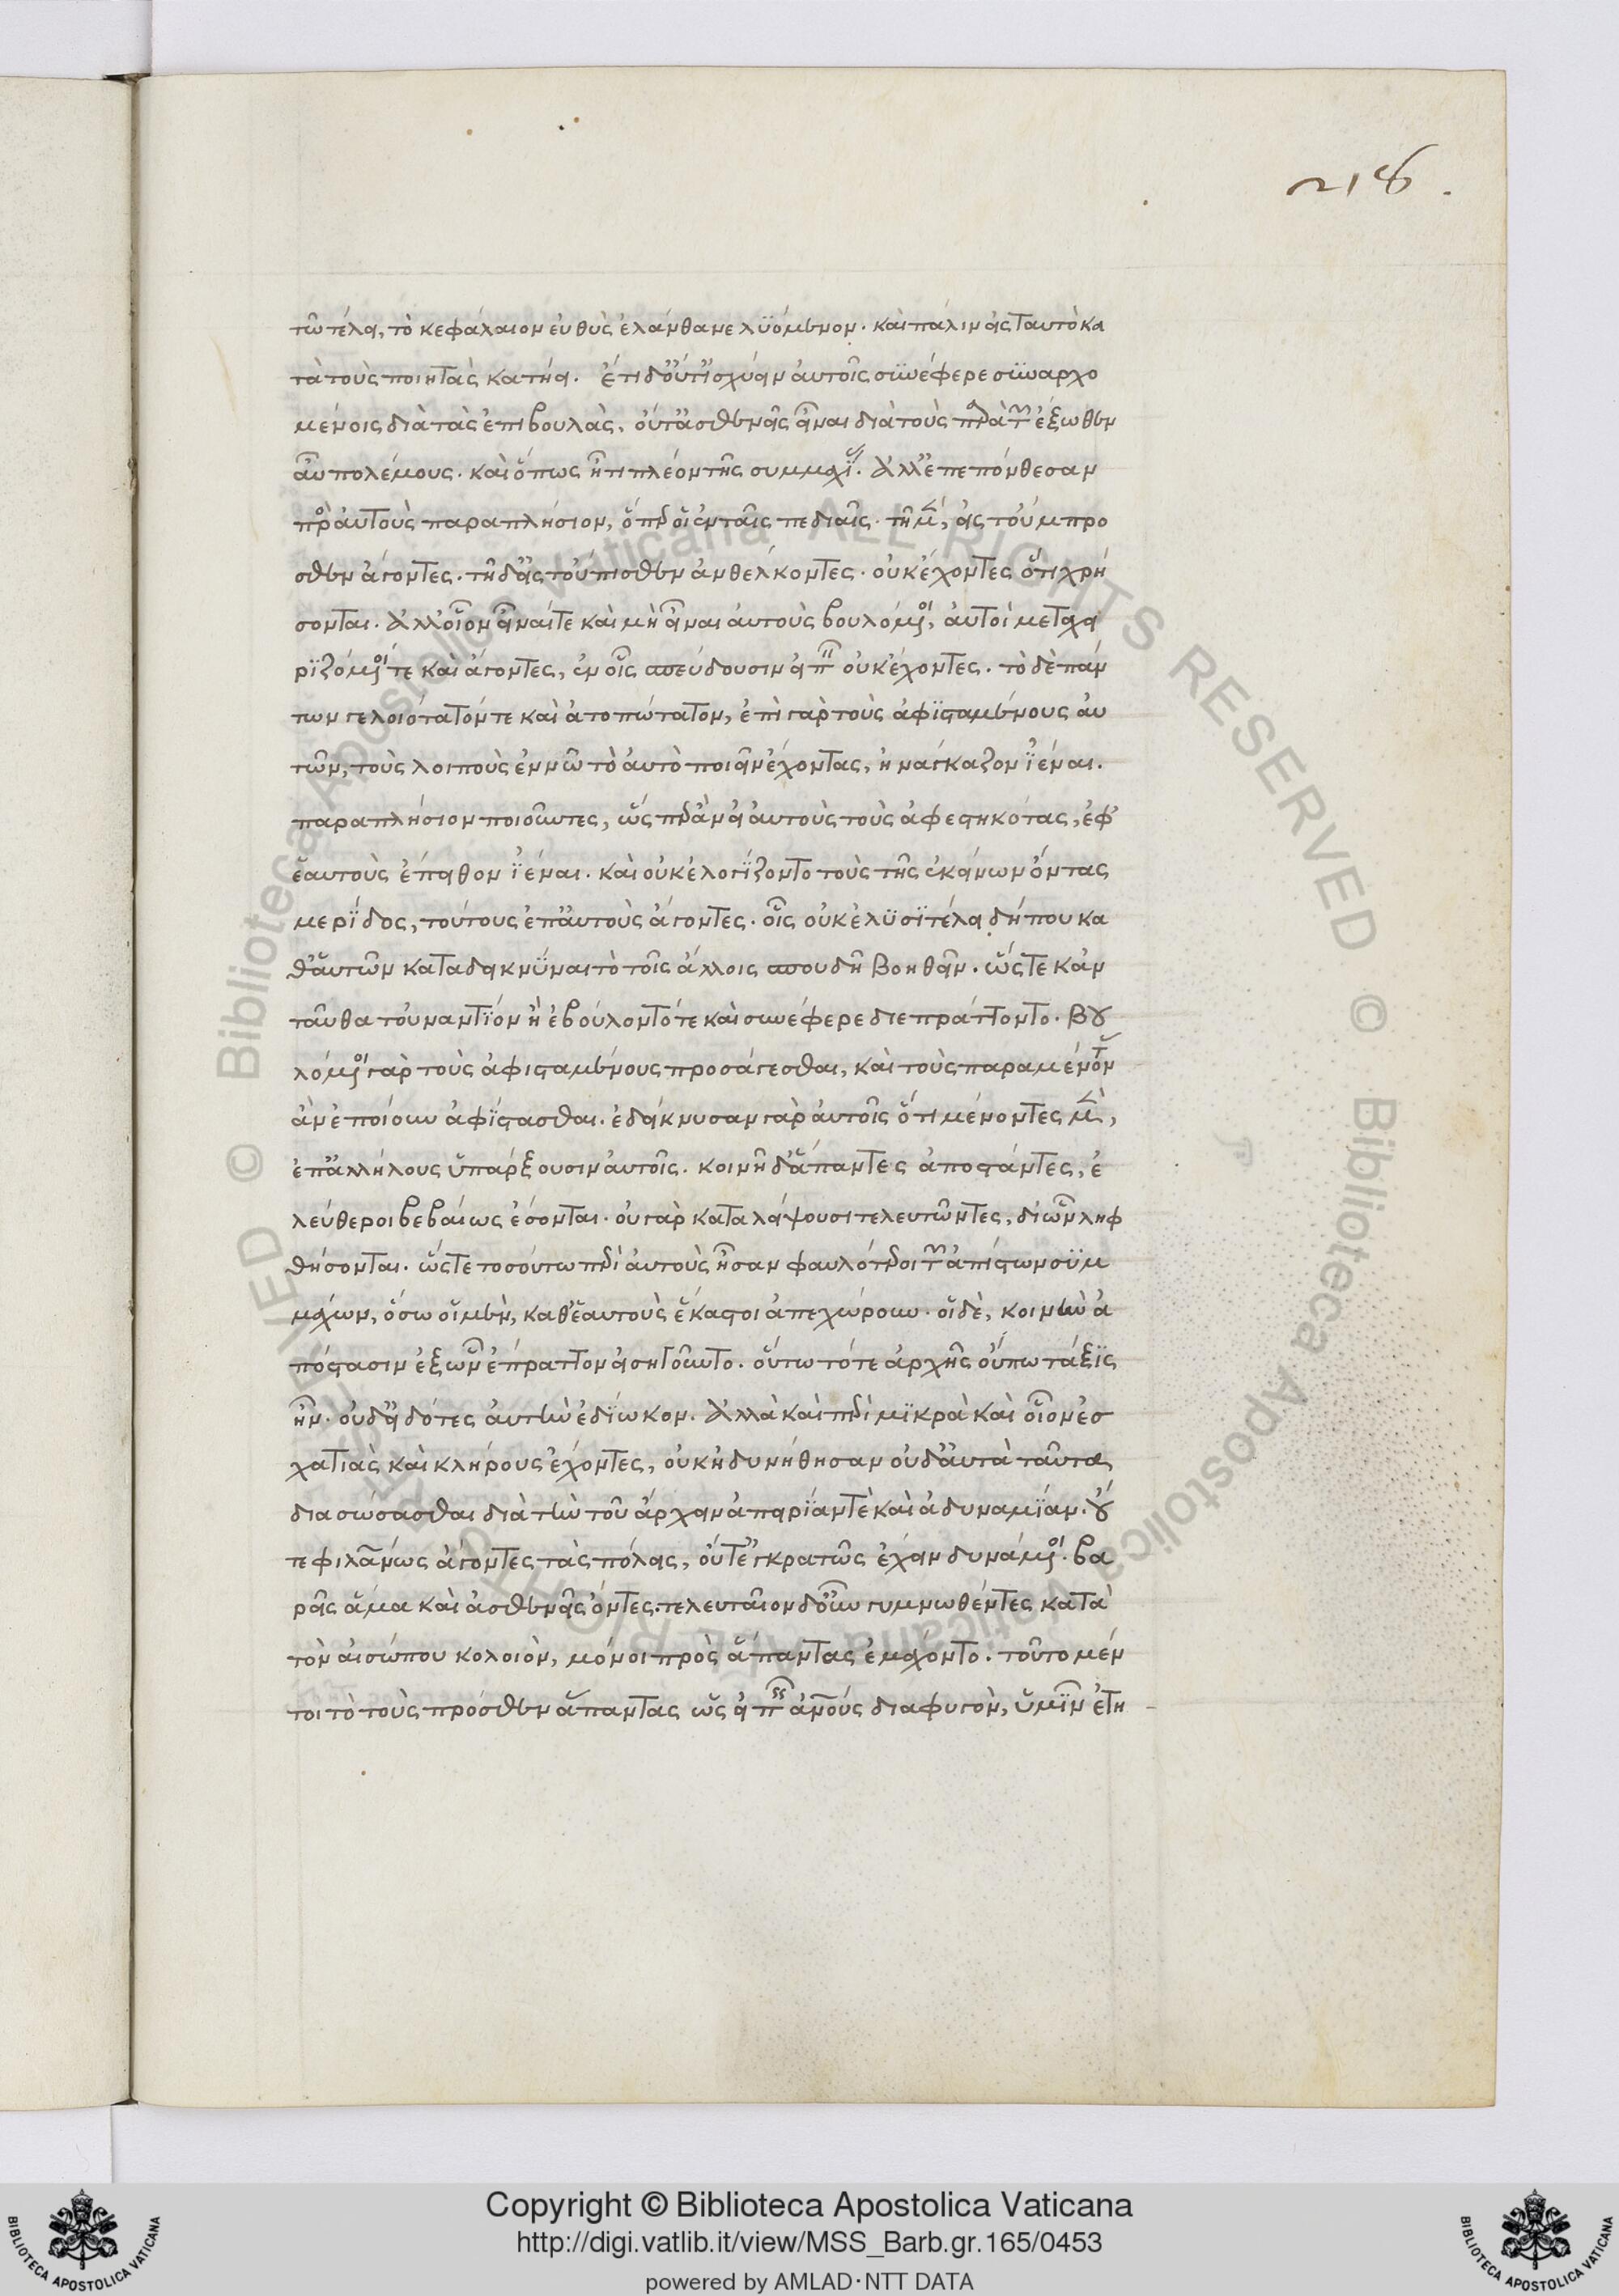 218.
τῶ τέλει, τὸ κεφάλαιον εὐθὺς ἐλάνθανε λϋόμενον. καὶ πάλιν εἰς ταυτὸ κα
τὰ τοὺς ποιητὰς κατήει. ἔτι δ' οὔτ' ἰσχύειν αὐτοῖς συνέφερε συναρχο
μένοις διὰ τὰς ἐπιβουλὰς, οὔτ' ἀσθενεῖς εἶναι διὰ τοὺς παρὰ τῶν ἔξωθεν
αὖ πολέμους. καὶ ὅπως ἦ τι πλέον τῆς συμμαχίας. Ἀλλ' ἐπεπόνθεσαν
πρὸς αὐτοὺς παραπλήσιον, ὅπερ οἱ ἐν ταῖς πεδιαῖς. τῆ μὲν, εἰς τοὔμπρο
σθεν ἄγοντες. τῆ δ' εἰς τοὔπισθεν ἀνθέλκοντες. οὐκ ἔχοντες ὅτι χρή
σονται. Ἀλλ' οἷον εἶναί τε καὶ μὴ εἶναι αὐτοὺς βουλόμενοι, αὐτοὶ μεταχει
ρϊζόμενοί τε καὶ ἄγοντες, ἐν οἷς σπεύδουσιν εἰπεῖν οὐκ ἔχοντες. τὸ δὲ πάν
των γελοιότατόν τε καὶ ἀτοπώτατον, ἐπὶ γὰρ τοὺς ἀφϊσταμένους αὐ
τῶν, τοὺς λοιποὺς ἐν νῶ τὸ αὐτὸ ποιεῖν ἔχοντας, ἠνάγκαζον ἰέναι.
παραπλήσιον ποιοῦντες, ὥσπερ ἂν εἰ αὐτοὺς τοὺς ἀφεστηκότας, ἐφ'
ἑαυτοὺς ἔπειθον ἰέναι. καὶ οὐκ ἐλογίζοντο τοὺς τῆς ἐκείνων ὄντας
μερϊδος, τούτους ἐπ' αὐτοὺς ἄγοντες. οἷς οὐκ ἐλϋσϊτέλει δήπου κα
θ' αὑτῶν καταδεικνύναι τὸ τοῖς ἄλλοις σπουδῆ βοηθεῖν. ὥστε κἀν
ταῦθα τοὐναντϊον ἢ ἐβούλοντό τε καὶ συνέφερε διεπράττοντο. βου
λόμενοι γὰρ τοὺς ἀφισταμένους προσάγεσθαι, καὶ τοὺς παραμένοντας
ἂν ἐποίουν ἀφϊστασθαι. ἐδείκνυσαν γὰρ αὐτοῖς ὅτι μένοντες μὲν,
ἐπ' ἀλλήλους ὑπάρξουσιν αὐτοῖς. κοινῆ δ' ἅπαντες ἀποστάντες, ἐ
λεύθεροι βεβαίως ἔσονται. οὐ γὰρ καταλείψουσι τελευτῶντες, δι' ὧν ληφ
θήσονται. ὥστε τοσούτω περὶ αὐτοὺς ἦσαν φαυλότεροι τῶν ἀπίστων συμ
μάχων, ὅσω οἱ μὲν, καθ' ἑαυτοὺς ἕκαστοι ἀπεχώρουν. οἱ δὲ, κοινὴν ἀ
πόστασιν ἐξ ὧν ἔπραττον εἰσηγοῦντο. οὕτω τότε ἀρχῆς οὔπω τάξϊς
ἦν. οὐδ' εἰδότες αὐτὴν ἐδϊωκον. Ἀλλὰ καὶ περὶ μϊκρὰ καὶ οἷον ἐσ
χατιὰς καὶ κλήρους ἔχοντες, οὐκ ἠδυνήθησαν οὐδ' αὐτὰ ταῦτα
διασώσασθαι διὰ τὴν τοῦ ἄρχειν ἀπειρϊαν τὲ καὶ ἀδυναμϊαν. οὔ
τε φιλανθρώπως ἄγοντες τὰς πόλεις, οὔτ' ἐγκρατῶς ἔχειν δυνάμενοι. βα
ρεῖς ἅμα καὶ ἀσθενεῖς ὄντες. τελευταῖον δ' οὖν γυμνωθέντες κατὰ
τὸν αἰσώπου κολοιὸν, μόνοι πρὸς ἅπαντας ἐμάχοντο. τοῦτο μέν
τοι τὸ τοὺς πρόσθεν ἅπαντας ὡς εἰπεῖν ἀνθρώπους διαφυγὸν, ὑμῖν ἐτη
© Biblioteca Apostolica Vaticana ALL RIGHTS RESERVED © Biblioteca Apostolica Vaticana ALL RIGHTS RESERVED
Copyright © Biblioteca Apostolica Vaticana
http://digi.vatlib.it/view/MSS_Barb.gr.165/0453
powered by AMLAD·NTT DATA
BIBLIOTECA APOSTOLICA VATICANA
BIBLIOTECA APOSTOLICA VATICANA